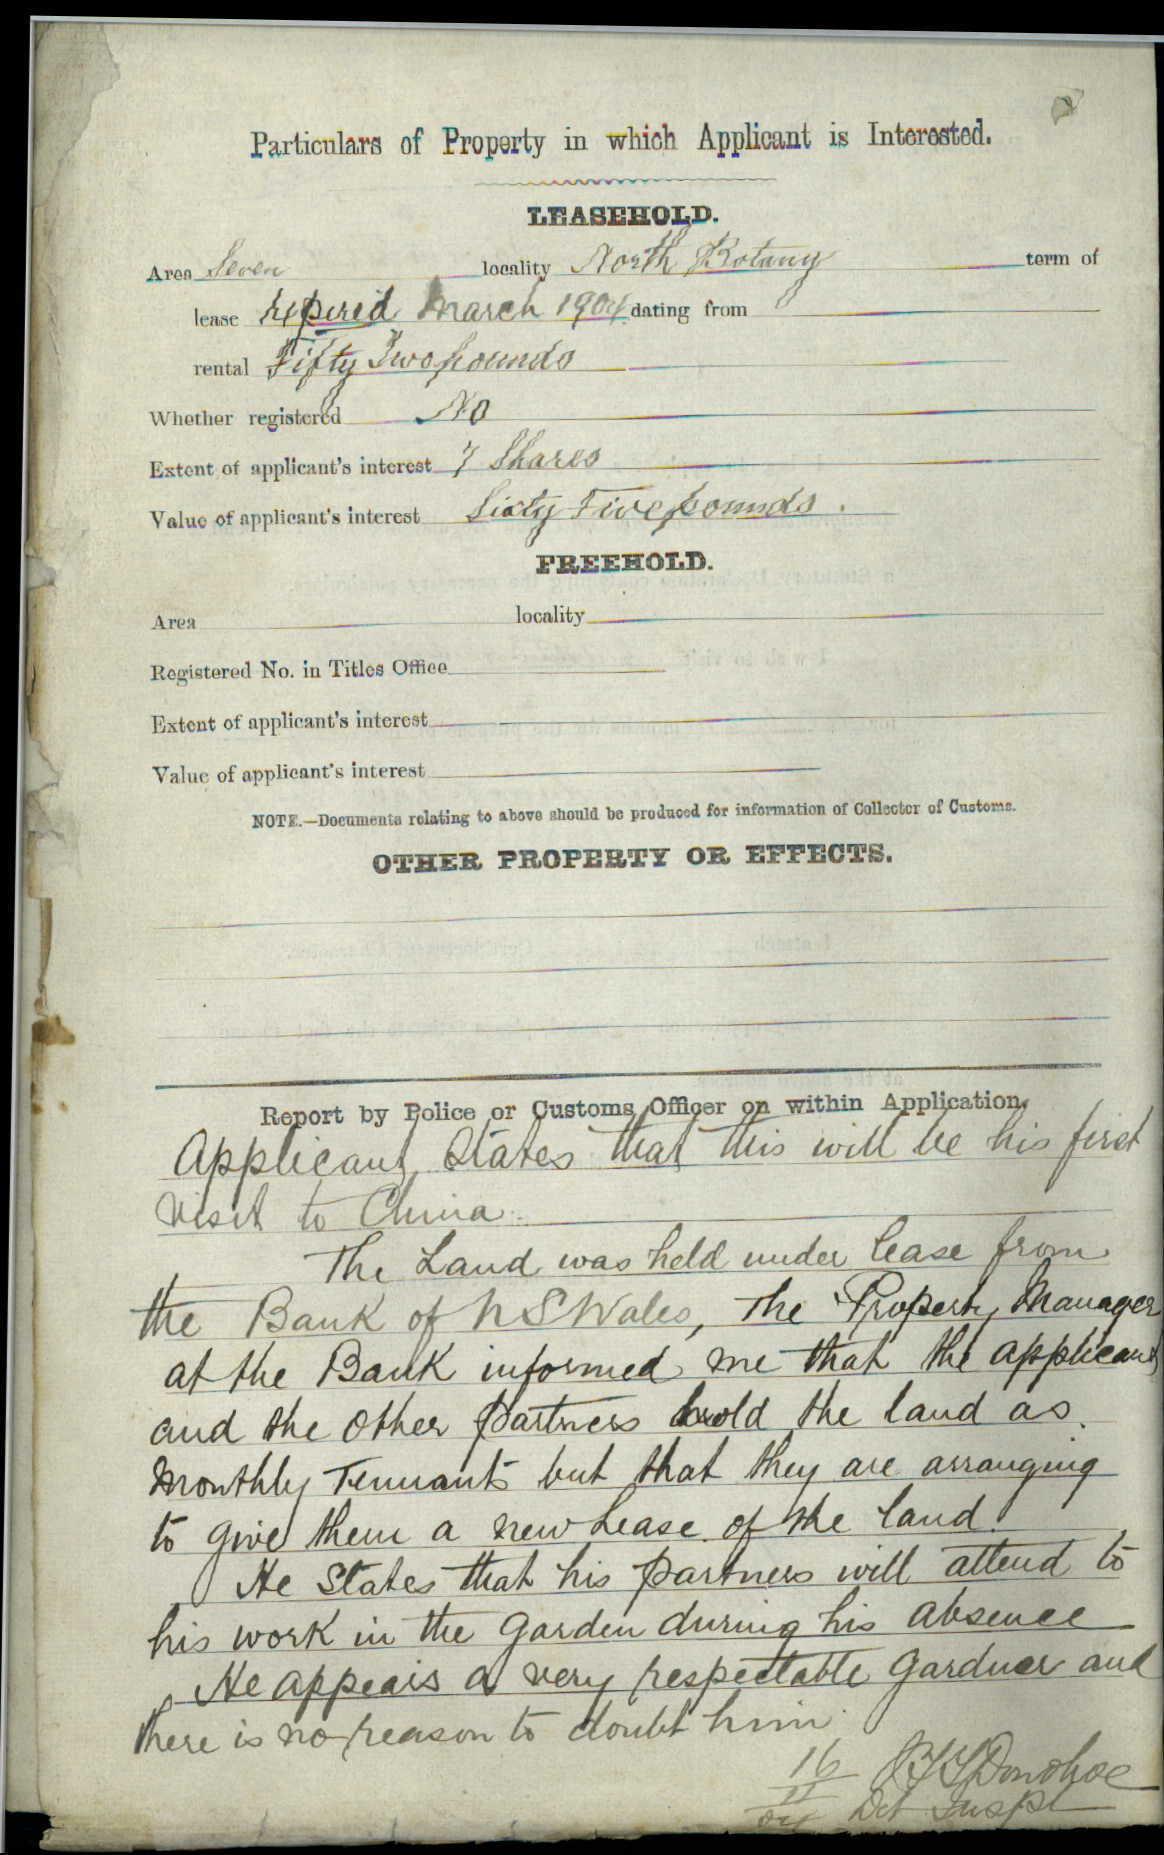 Particulars of Property in which Applicant is Interested.
LEASEHOLD.
Area Seven locality North Botany term of
lease expired March 1904 dating from
rental Fifty Two pounds
Whether registered No
Extent of applicant's interest 7 Shares
Value of applicant's interest Sixty Five pounds.
FREEHOLD.
Area locality
Registered No. in Titles Office
Extent of applicant's interest
Value of applicant's interest
NOTE.—Documents relating to above should be produced for information of Collector of Customs.
OTHER PROPERTY OR EFFECTS.
Report by Police or Customs Officer on within Application.
Applicant States that this will be his first
visit to China.
The Land was held under lease from
the Bank of N S Wales, The Property Manager
at the Bank informed me that the applicant
and the other partners hold the land as
monthly Tennants but that they are arranging
to give them a new Lease of the land.
He States that his partners will attend to
his work in the Garden during his absence
He appears a very respectable Gardner and
there is no reason to doubt him.
16 Donohoe
11 Det Inspr
04